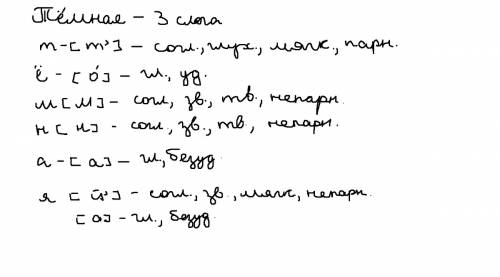 Тёмная – 3 слога
т - [т'] – согл., глух., мягк., парн.
ё - [о́] – гл., уд.
м [м] – согл., зв., тв., непарн.
н [н] - согл., зв., тв., непарн.
а - [а] – гл., безуд.
я [й'] - согл., зв., мягк., непарн.
[а] - гл., безуд.